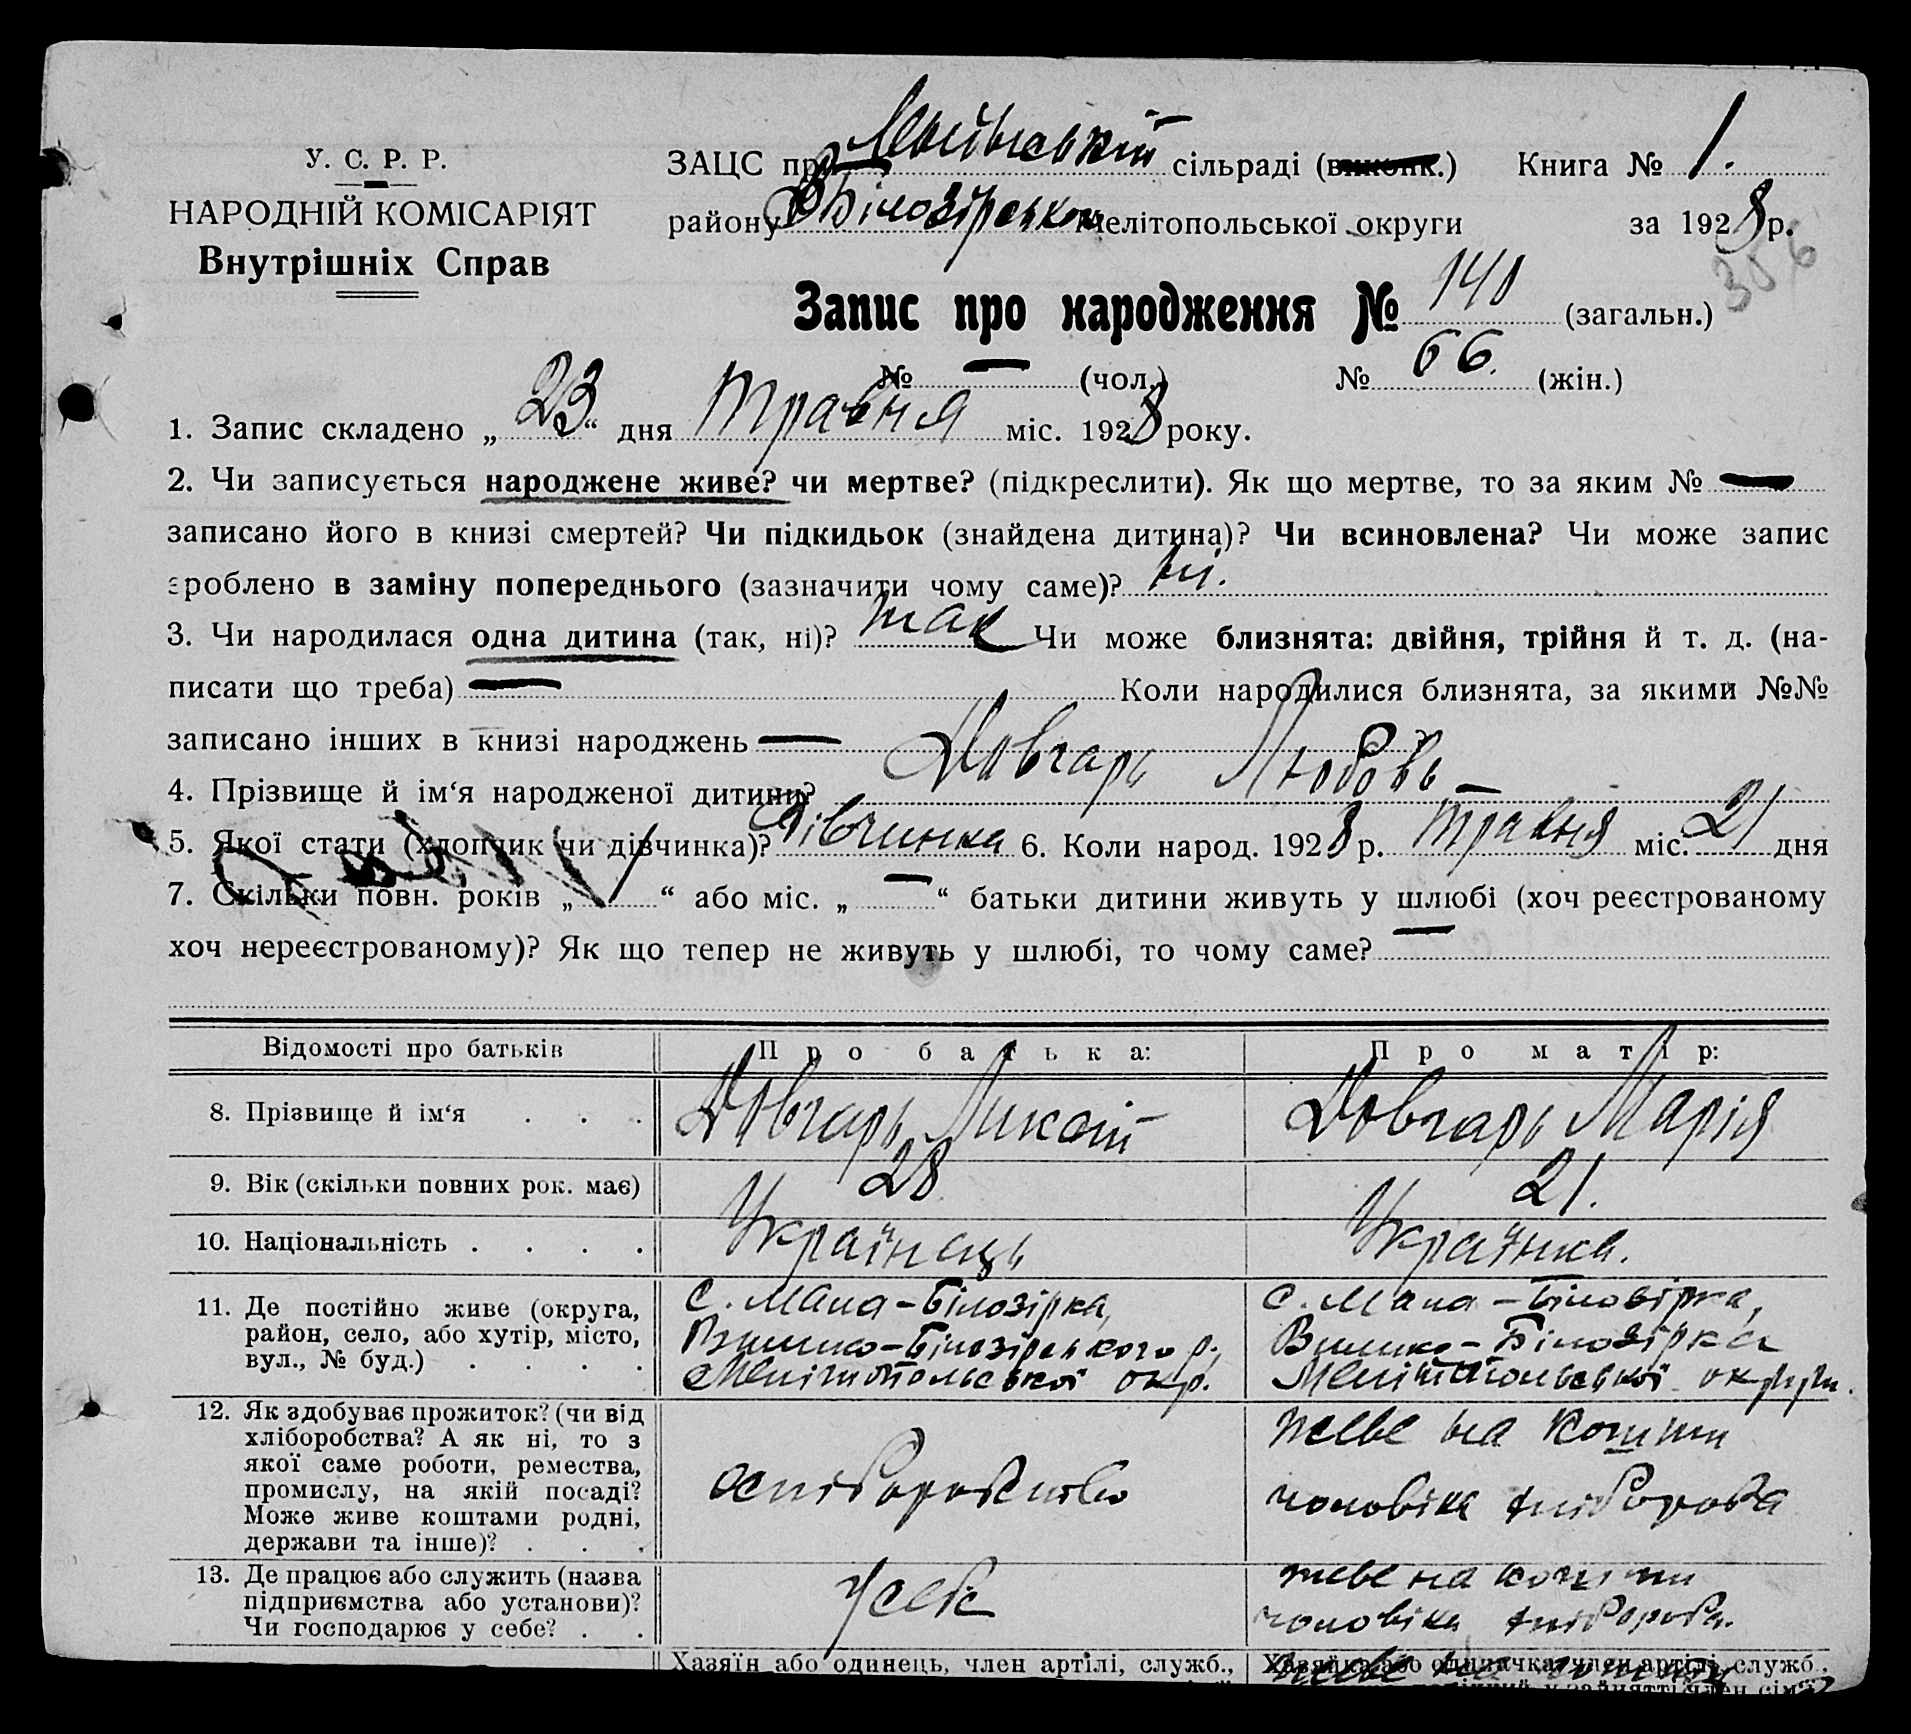 У. С. Р. Р.
НАРОДНІЙ КОМІСАРІЯТ
Внутрішніх Справ
ЗАЦС при сільраді (виконк.) Книга № 1.
району В Білозірського Мелітопольської округи за 1928 р.
306
Запис про народження № 140 (загальн.)
№ — (чол.) № 66. (жін.)
1. Запис складено „23“ дня Травня міс. 1928 року.
2. Чи записується народжене живе? чи мертве? (підкреслити). Як що мертве, то за яким № —
записано його в книзі смертей? Чи підкидьок (знайдена дитина)? Чи всиновлена? Чи може запис
зроблено в заміну попереднього (зазначити чому саме)? Ні.
3. Чи народилася одна дитина (так, ні)? так Чи може близнята: двійня, трійня й т. д. (на-
писати що треба) — Коли народилися близнята, за якими №№
записано інших в книзі народжень —
4. Прізвище й ім‘я народженої дитини? Довгарь Любовь
5. Якої стати (хлопчик чи дівчинка)? Дівчинка 6. Коли народ. 1928 р. Травня міс. 21 дня
7. Скільки повн. років „1“ або міс. „—“ батьки дитини живуть у шлюбі (хоч реєстрованому
хоч нереєстрованому)? Як що тепер не живуть у шлюбі, то чому саме? —
Відомості про батьків Про батька: Про матір:
8. Прізвище й ім‘я . . . Довгарь Микита Довгарь Марія
9. Вік (скільки повних рок. має) 28 21.
10. Національність . . . . Українець Українка.
11. Де постійно живе (округа,
район, село, або хутір, місто,
вул., № буд.) . . . .
с. Мала-Білозірка,
Велико-Білозірського р.,
Мелітопольської окр.
с. Мала-Білозірка,
Велико-Білозірка
Мелітопольської округи.
12. Як здобуває прожиток? (чи від
хліборобства? А як ні, то з
якої саме роботи, ремества,
промислу, на якій посаді?
Може живе коштами родні,
держави та інше)? . . .
хліборобство
живе на кошти
чоловіка хлібороба
13. Де працює або служить (назва
підприємства або установи)?
Чи господарює у себе? . .
У себе
живе на кошти
чоловіка хлібороба.
Хазяїн або одинець, член артілі, служб.,
Хазяйка або одиначка, член артілі, служб.,
живе на кошти